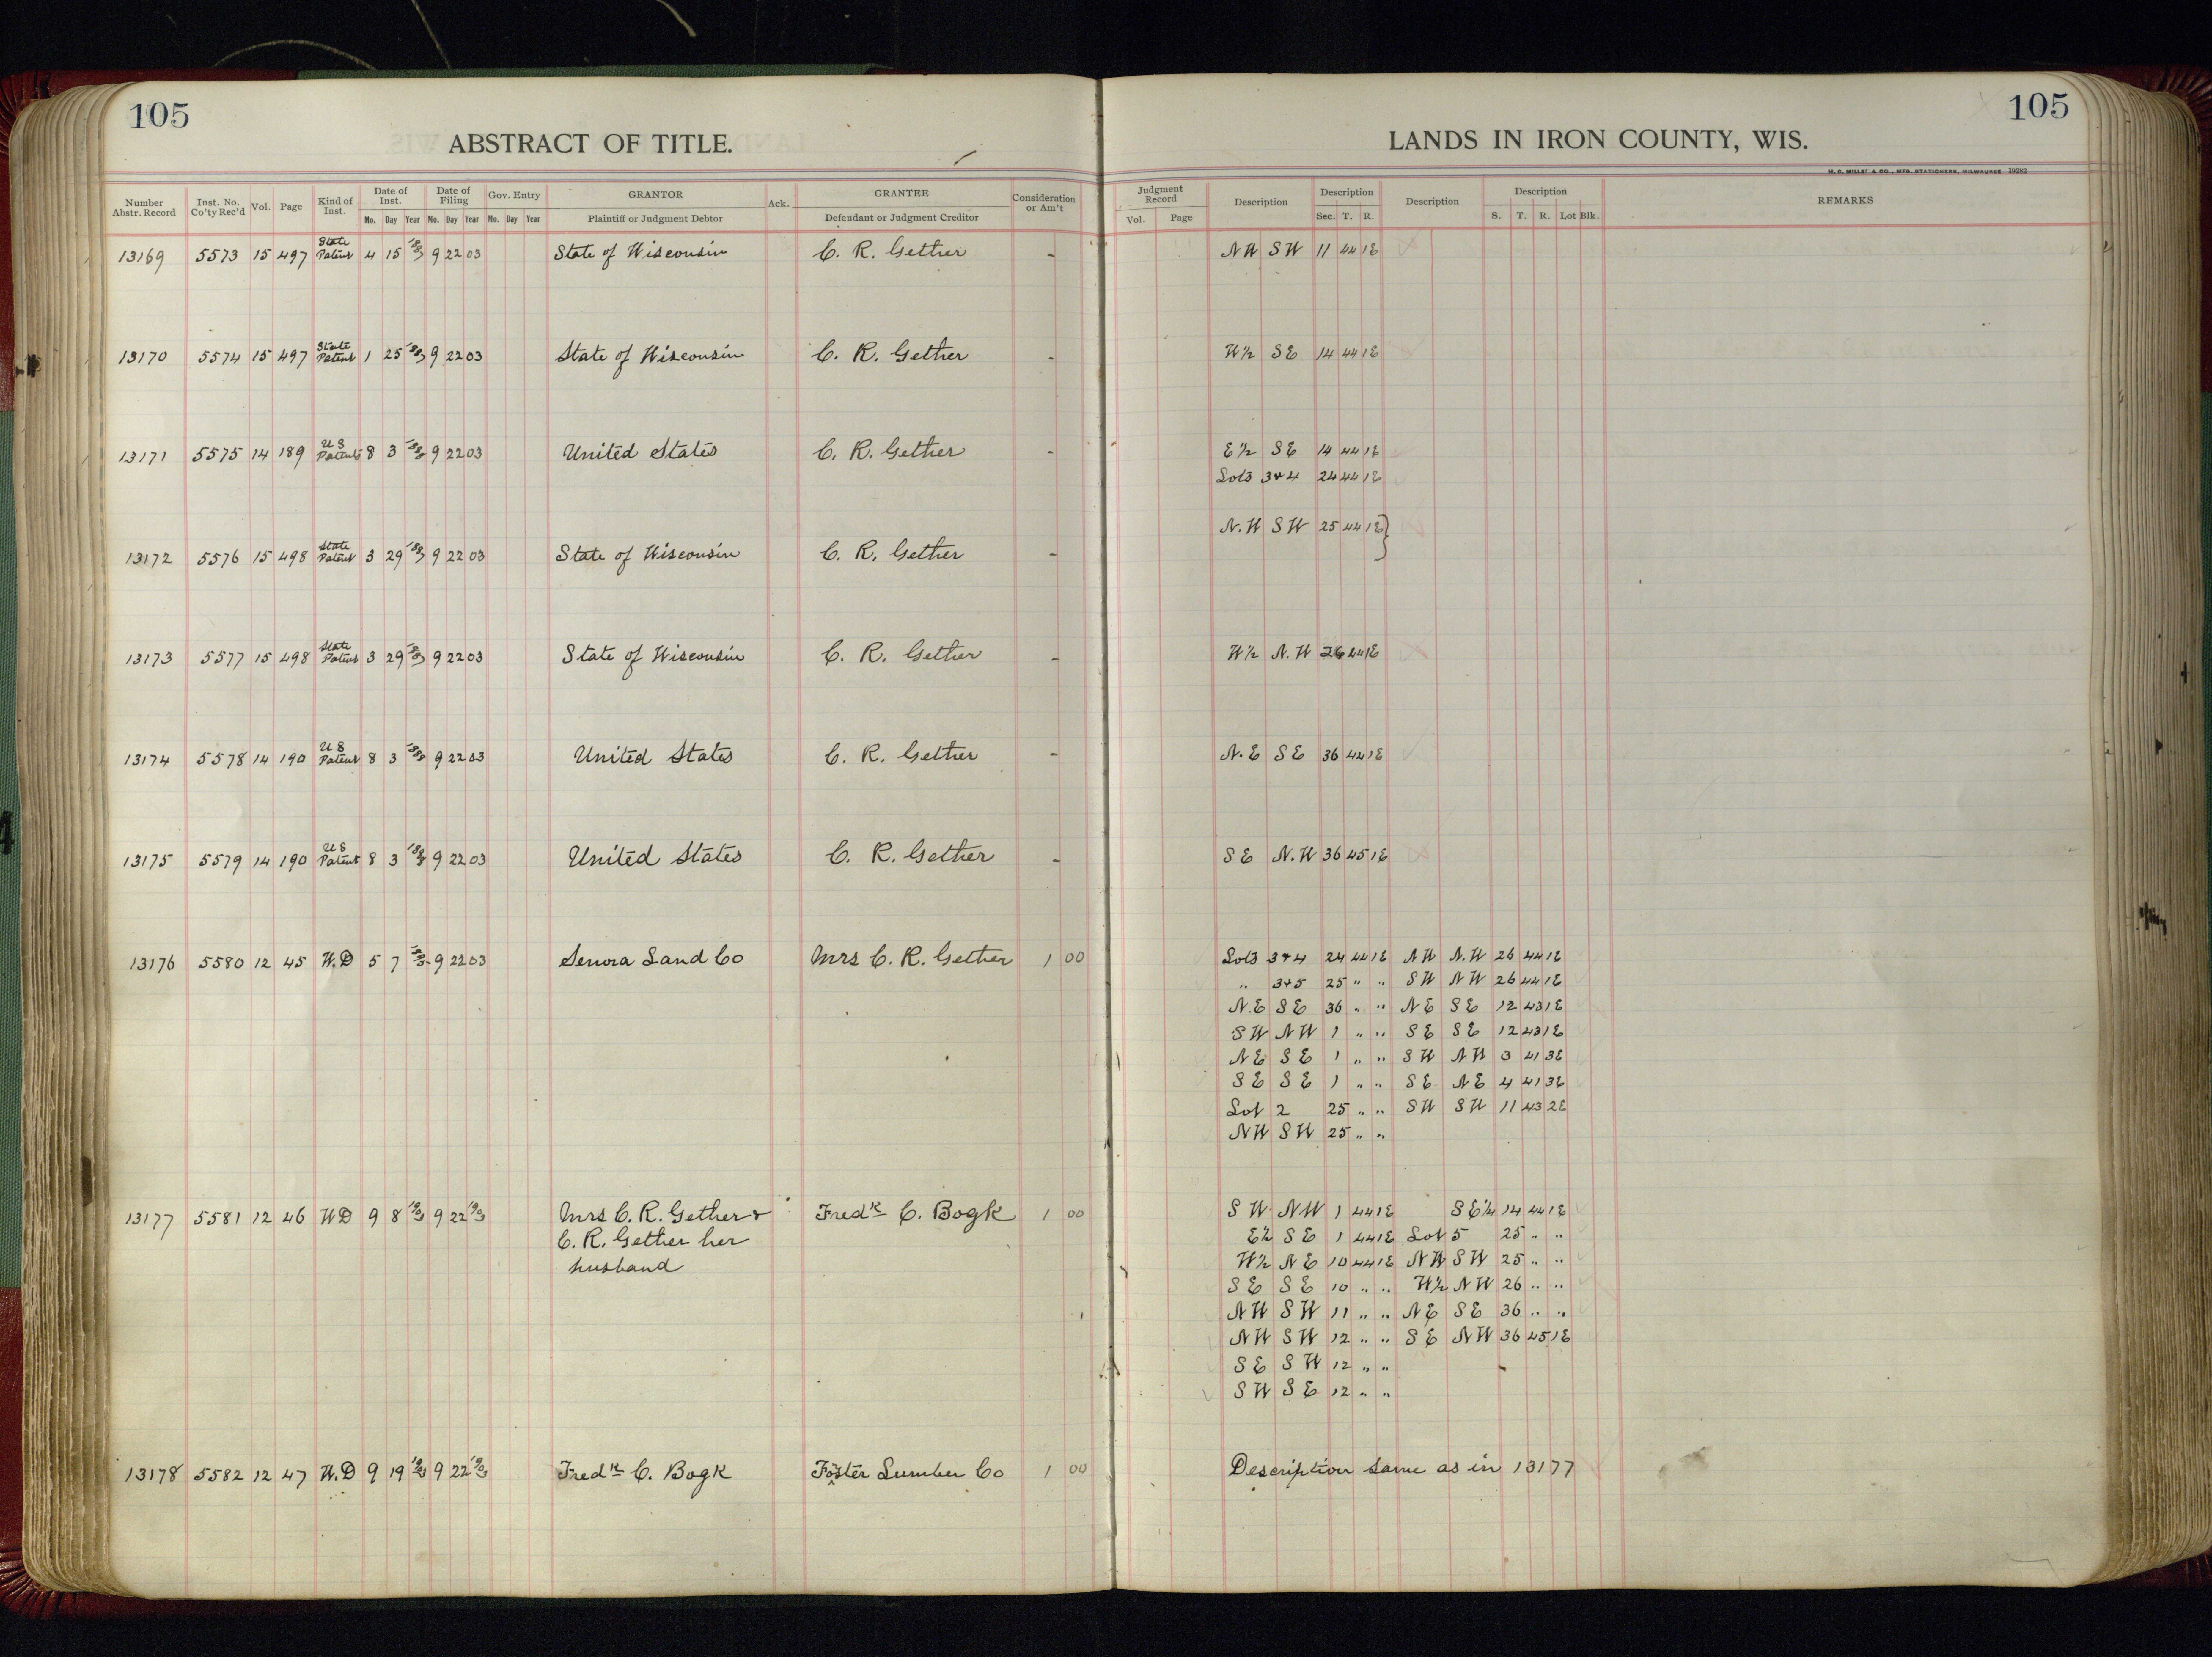 105
ABSTRACT OF TITLE.
Number Abstr. Record Inst. No. Co'ty Rec'd Vol. Page Kind of Inst. Date of Inst. Mo. Day Year Date of Filing Mo. Day Year Gov. Entry Mo. Day Year GRANTOR Plaintiff or Judgment Debtor Ack. GRANTEE Defendant or Judgment Creditor Consideration or Am't
105
LANDS IN IRON COUNTY, WIS.
H. C. MILLER CO., MFG. STATIONERS, MILWAUKEE 19282
Judgment Record Vol. Page Description Description Sec. T. R. Description Description S. T. R. Lot Blk. REMARKS
13169 5573 15 497 State Patent 4 15 9 22 03 State of Wisconsin C. R. Gether - NW SW 11 44 1E
13170 5574 15 497 State Patent 1 25 9 22 03 State of Wisconsin C. R. Gether - W½ SE 14 44 1E
13171 5575 14 189 US Patent 8 3 9 22 03 United States C. R. Gether - E½ SE 14 44 1E
Lots 3+4 24 44 1E
N.W SW 25 44 1E}
13172 5576 15 498 State Patent 3 29 9 22 03 State of Wisconsin C. R. Gether -
13173 5577 15 498 State Patent 3 29 9 22 03 State of Wisconsin C. R. Gether - W½ N.W 26 44 1E
13174 5578 14 190 US Patent 8 3 9 22 03 United States C. R. Gether - N.E SE 36 44 1E
13175 5579 14 190 US Patent 8 3 9 22 03 United States C. R. Gether - SE N.W 36 45 1E
13176 5580 12 45 W.D 5 7 9 22 03 Senora Land Co Mrs C. R. Gether 1 00 Lots 3+4 24 44 1E NW N.W 26 44 1E
" 3+5 25 " " SW NW 26 44 1E
N.E SE 36 " " NE SE 12 43 1E
SW NW 1 " " SE SE 12 43 1E
NE SE 1 " " SW NW 3 41 3E
SE SE 1 " " SE NE 4 41 3E
Lot 2 25 " " SW SW 11 43 2E
NW SW 25 " "
13177 5581 12 46 WD 9 8 1903 9 22 1903 Mrs C. R. Gether & Fredk C. Bogk 1 00 SW NW 1 44 1E SE¼ 14 44 1E
C. R. Gether her E½ SE 1 44 1E Lot 5 25 " "
husband W½ NE 10 44 1E NW SW 25 " "
SE SE 10 " " W½ NW 26 " "
NW SW 11 " " NE SE 36 " "
NW SW 12 " " SE NW 36 45 1E
SE SW 12 " "
SW SE 12 " "
13178 5582 12 47 W.D 9 19 1903 9 22 1903 Fredk C. Bogk Foster Lumber Co 1 00 Description same as in 13177